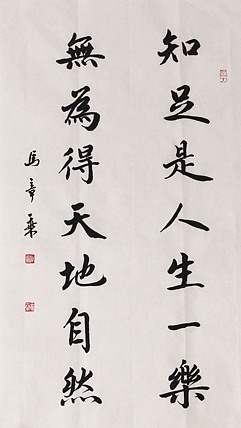 知足是人生一樂
無為得天地自然
馬章乘